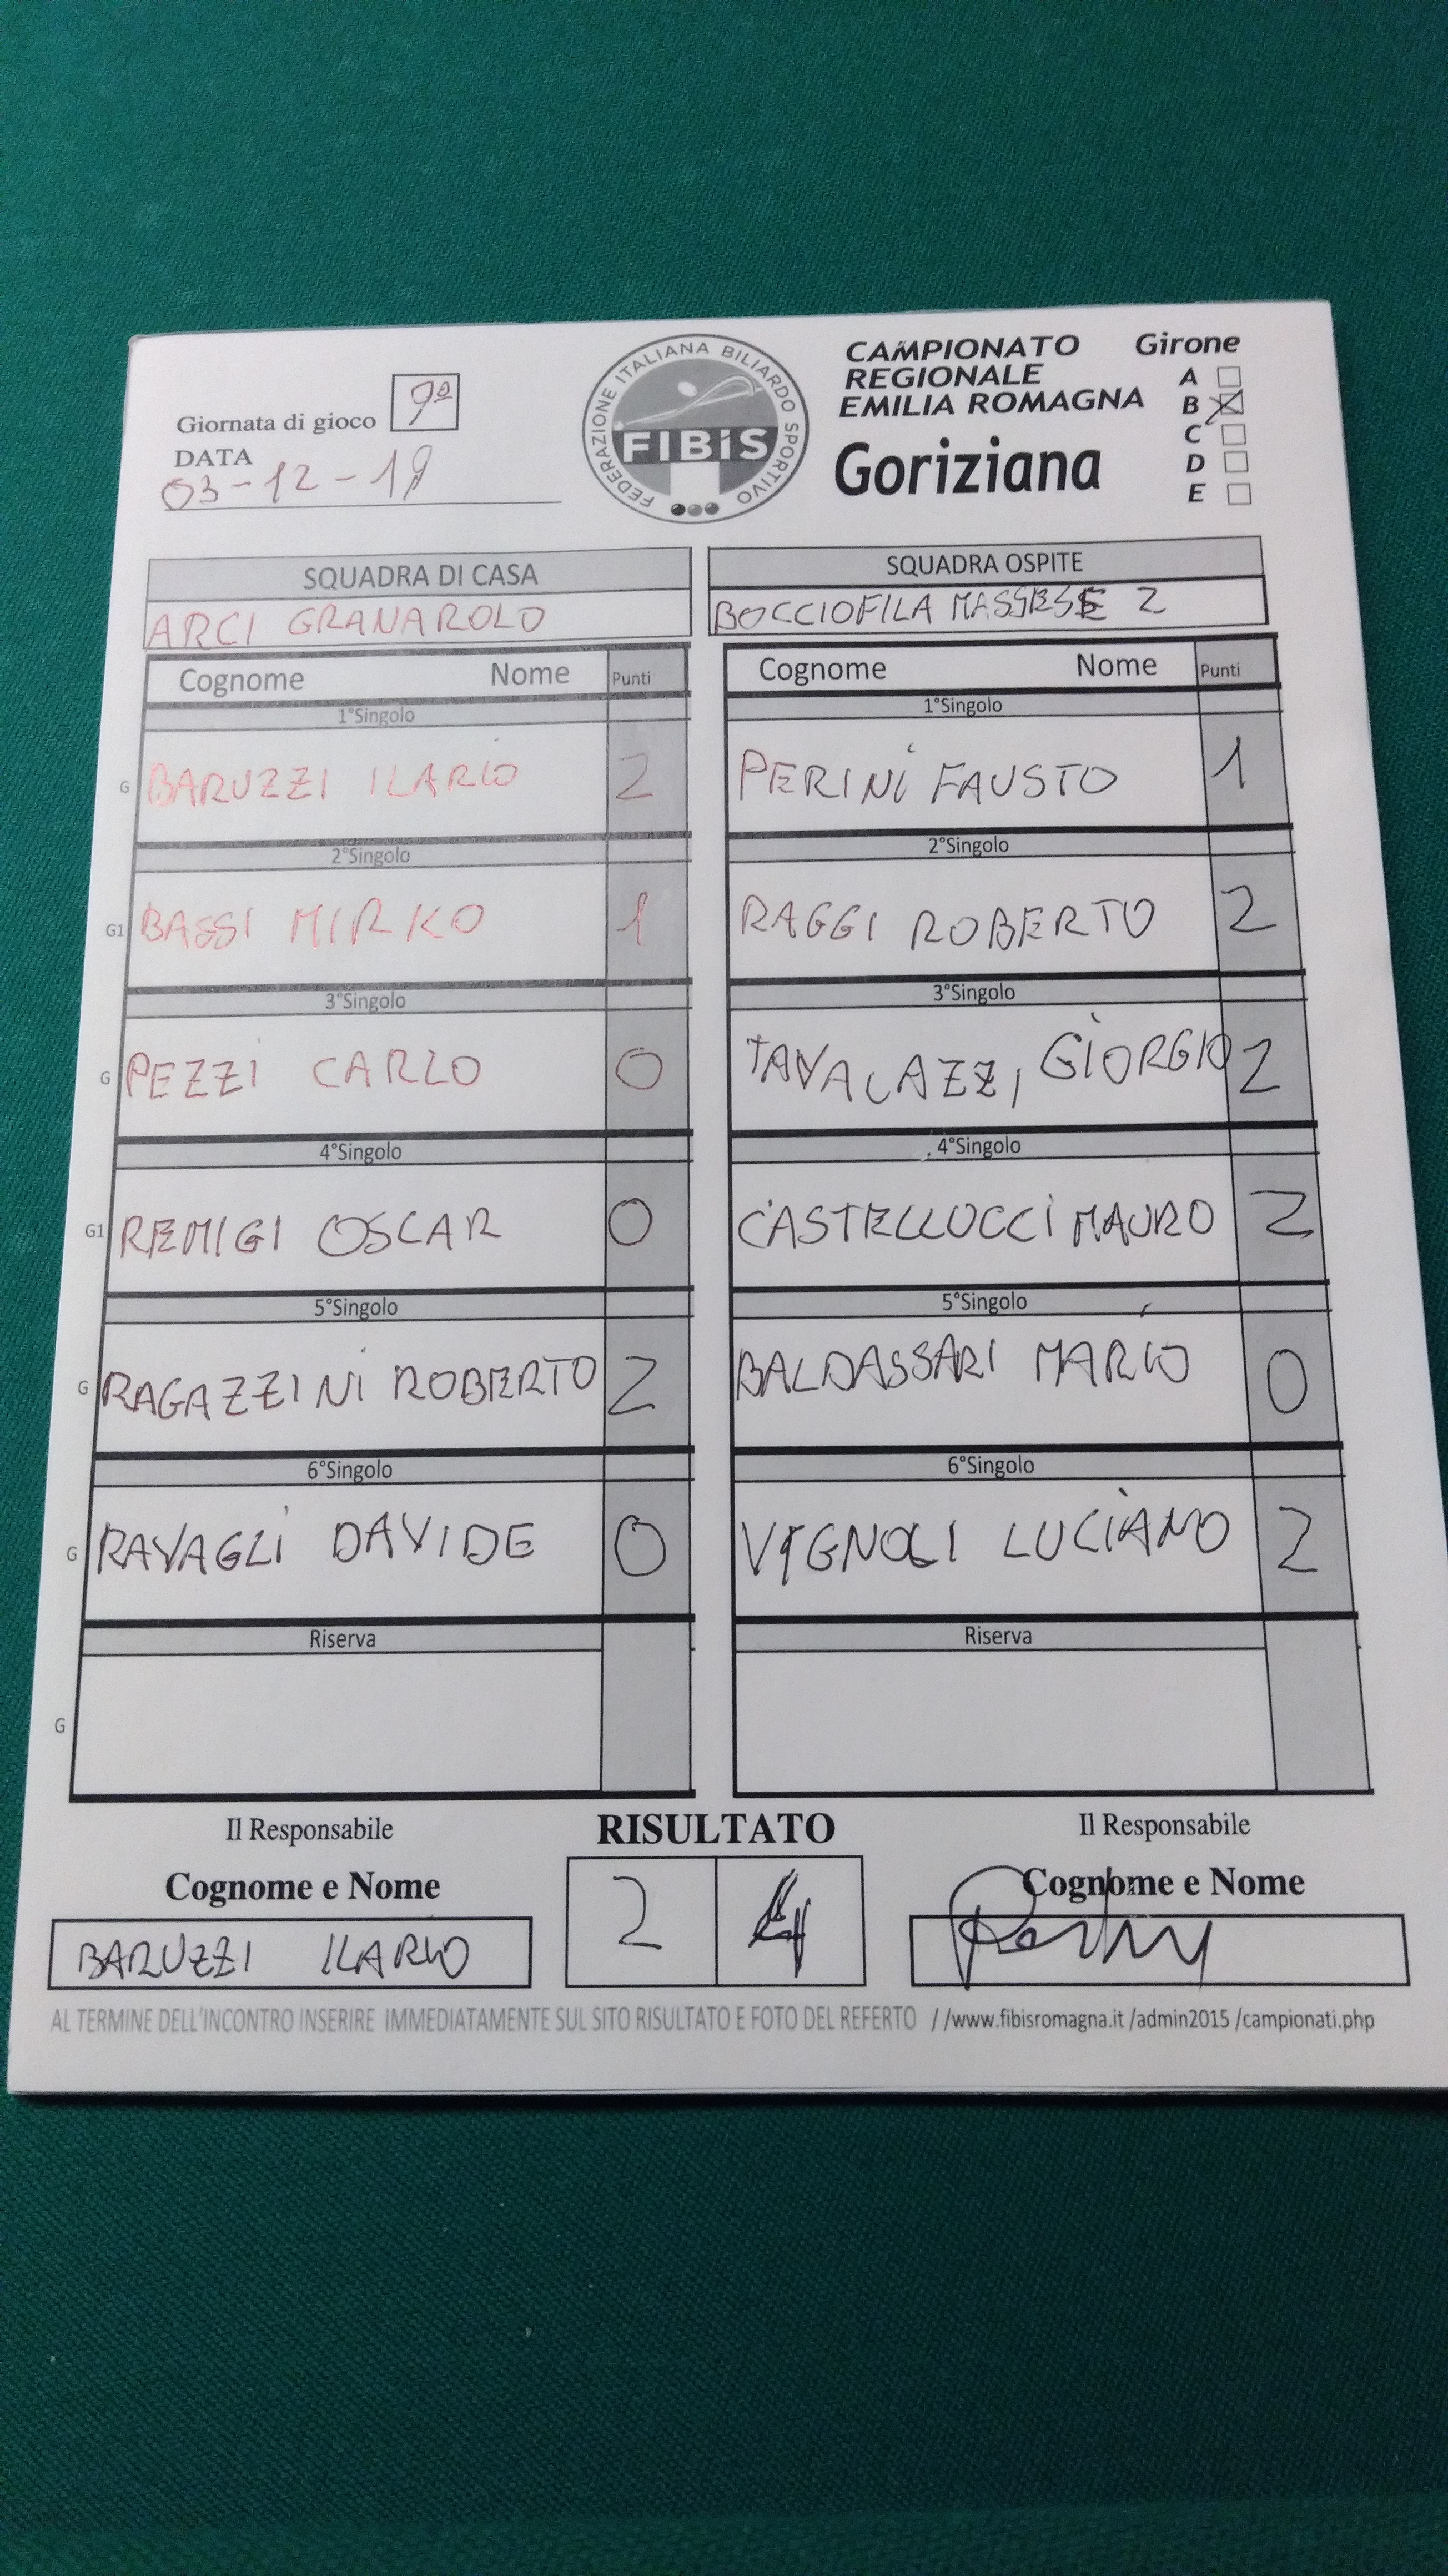 Giornata di gioco 9ª
DATA
03-12-19
FEDERAZIONE ITALIANA BILIARDO SPORTIVO
FIBiS
CAMPIONATO
REGIONALE
EMILIA ROMAGNA
Goriziana
Girone
A
B X
C
D
E
SQUADRA DI CASA
ARCI GRANAROLO
SQUADRA OSPITE
BOCCIOFILA MASSESE 2
Cognome Nome Punti
Cognome Nome Punti
1°Singolo
1°Singolo
G BARUZZI ILARIO 2
PERINI FAUSTO 1
2°Singolo
2°Singolo
G1 BASSI MIRKO 1
RAGGI ROBERTO 2
3°Singolo
3°Singolo
G PEZZI CARLO 0
TAVALAZZI GIORGIO 2
4°Singolo
4°Singolo
G1 REMIGI OSCAR 0
CASTELLUCCI MAURO 2
5°Singolo
5°Singolo
G RAGAZZINI ROBERTO 2
BALDASSARI MARIO 0
6°Singolo
6°Singolo
G RAVAGLI DAVIDE 0
VIGNOLI LUCIANO 2
Riserva
Riserva
G
Il Responsabile
RISULTATO
Il Responsabile
Cognome e Nome
Cognome e Nome
BARUZZI ILARIO
2 4
AL TERMINE DELL'INCONTRO INSERIRE IMMEDIATAMENTE SUL SITO RISULTATO E FOTO DEL REFERTO //www.fibisromagna.it /admin2015 /campionati.php